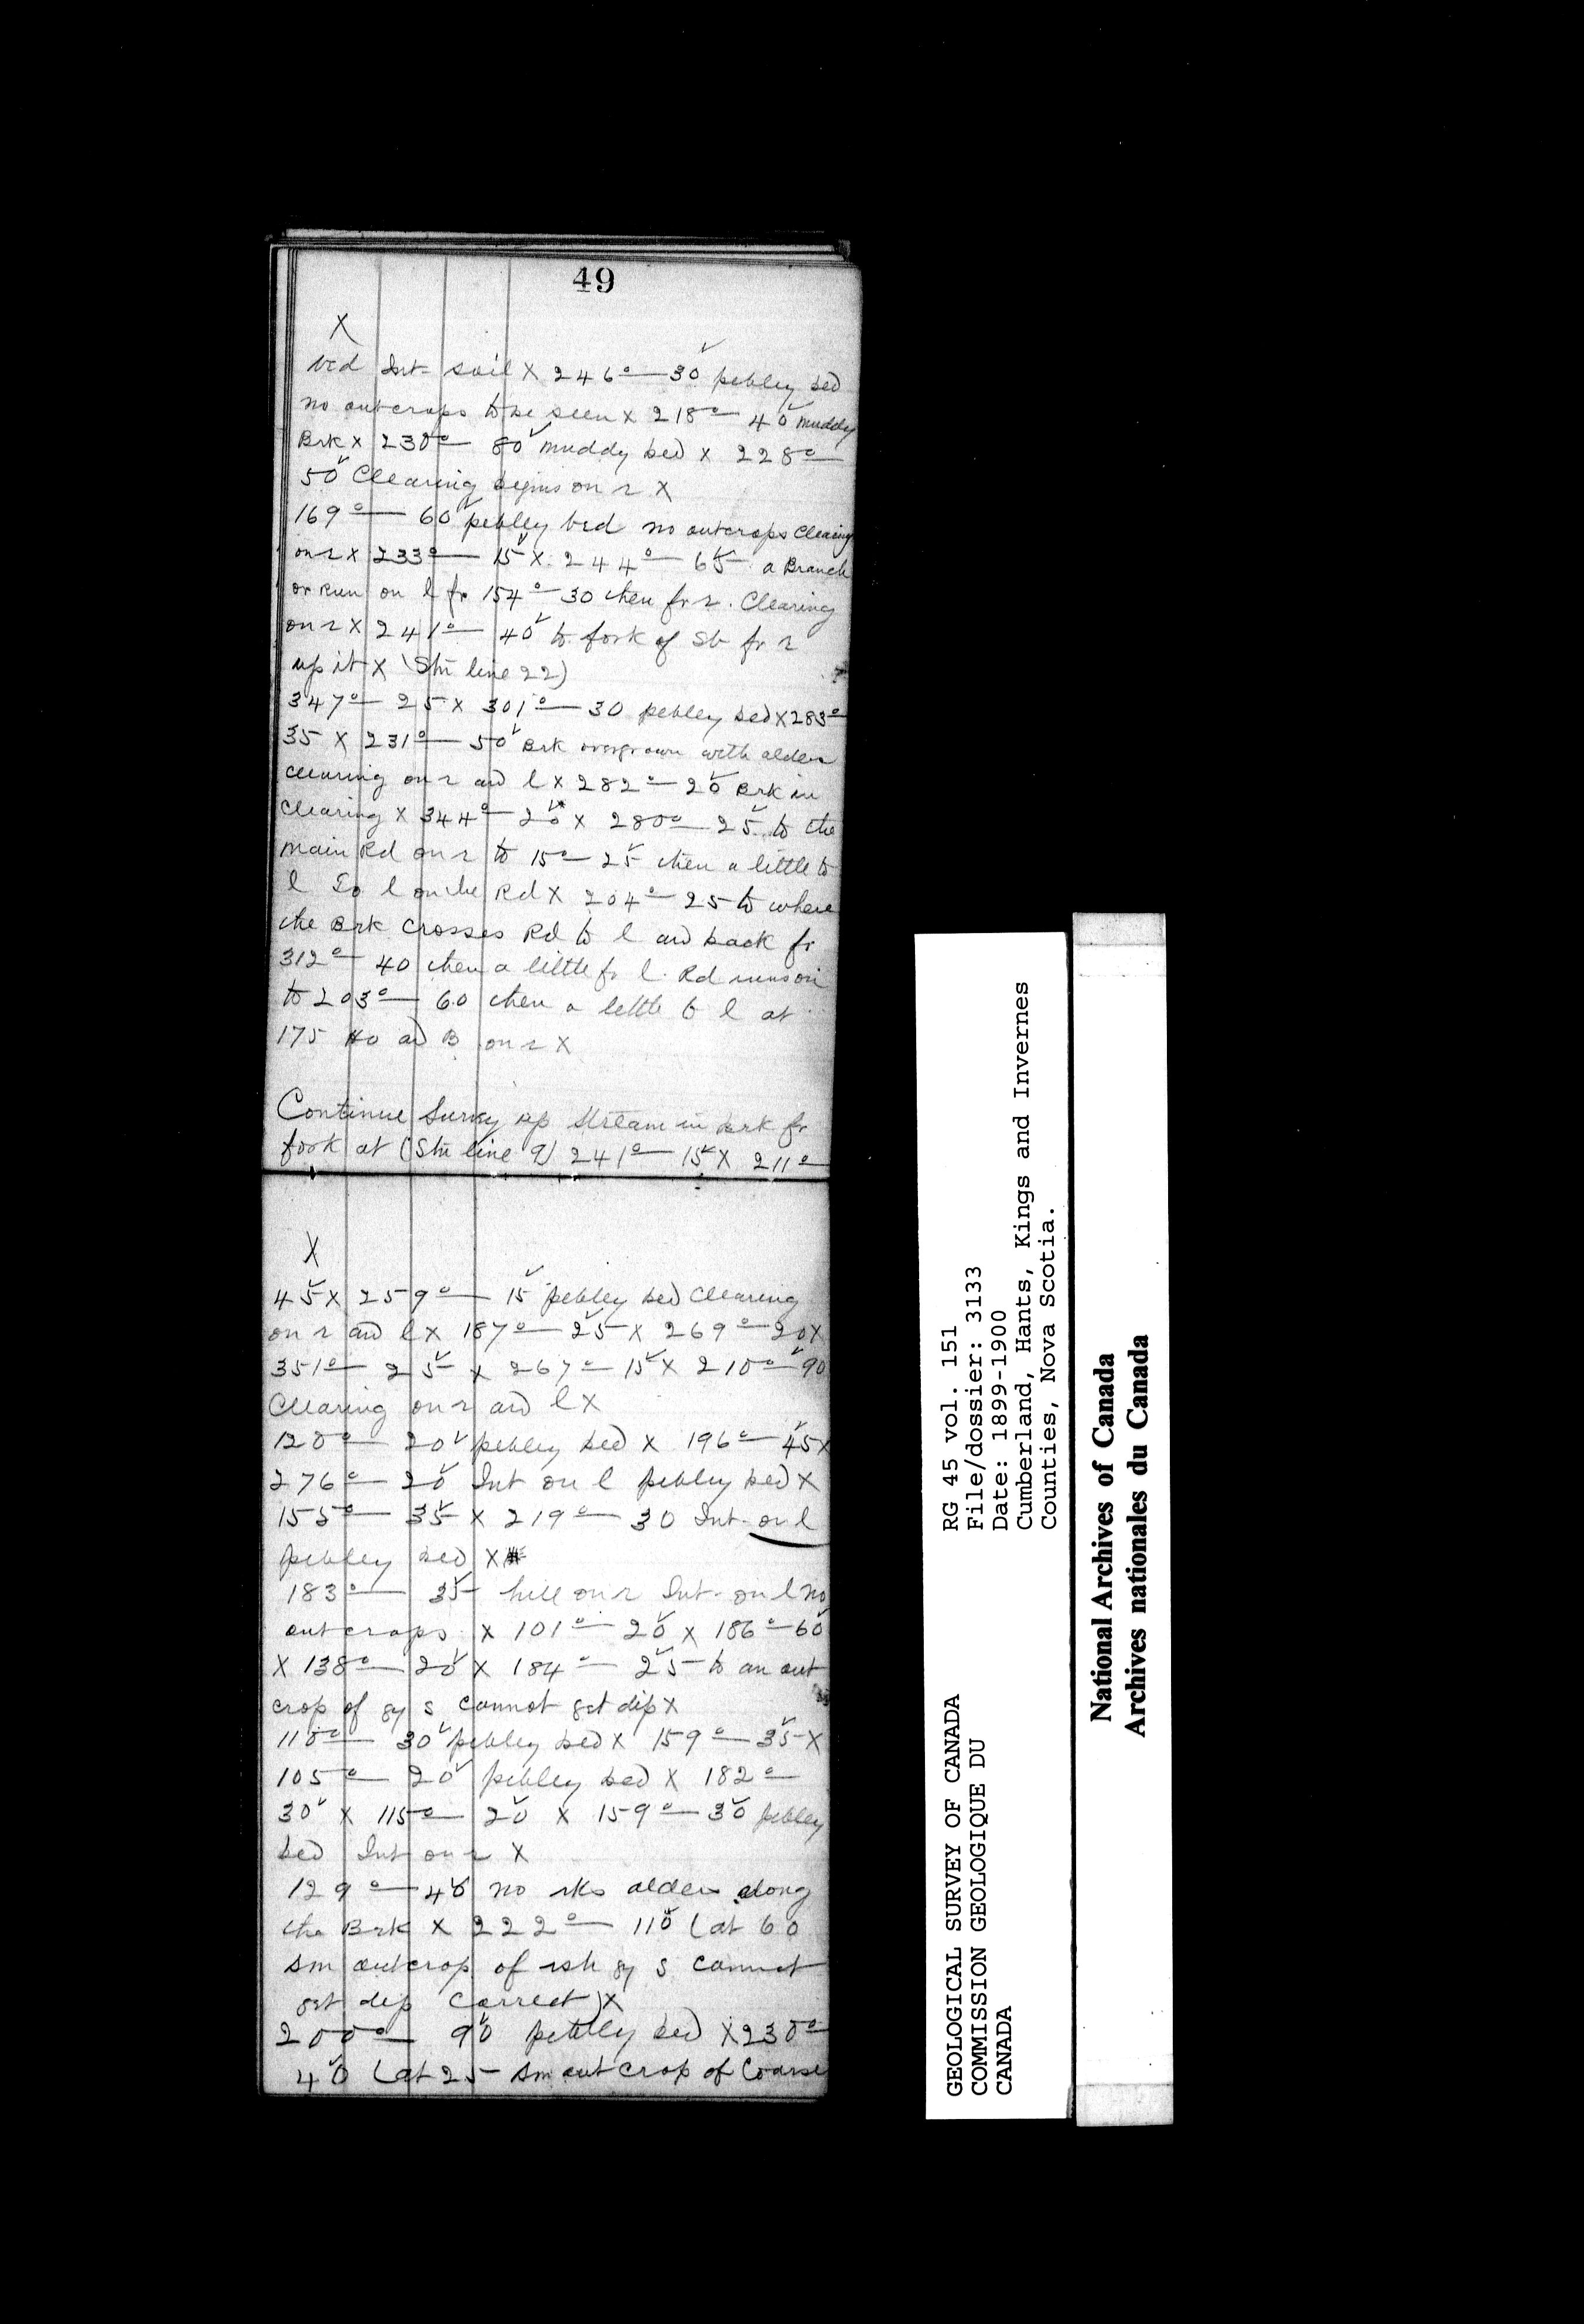 49
X
bed Int- soil X 246° — 30 pebley bed
no outcrops to be seen X 218° — 40 muddy
Brk X 230° — 80 muddy bed X 228° —
50 Clearing begins on r X
169° — 60 pebley bed no outcrops Clearing
on r X 233° — 15 X 244° — 65 a Branch
or Run on l fr 154° — 30 then fr r. Clearing
on r X 241° — 40 to fork of Sb fr r
up it X (Stn line 22)
347° — 25 X 301° — 30 pebley bed X 283° —
35 X 231° — 50 Brk overgrown with alders
clearing on r and l X 282° — 20 Brk in
Clearing X 344° — 20 X 280° — 25 to the
main Rd on r to 15° — 25 then a little to
l Go l on the Rd X 204° — 25 to where
the Brk Crosses Rd to l and back fr
312° — 40 then a little fr l. Rd runs on
to 203° — 60 then a little to l at
175 Ho and B on r X
Continue Survey up Stream in Brk fr
fork at (Stn line 9) 241° — 15 X 211° —
X
45 X 259° — 15 pebley bed Clearing
on r and l X 187° — 25 X 269° — 20 X
351° — 25 X 267° — 15 X 210° — 90
Clearing on r and l X
120° — 20 pebley bed X 196° — 45 X
276° — 20 Int on l pebley bed X
155° — 35 X 219° — 30 Int- on l
pebley bed X
183° — 35 hill on r Int- on l no
outcrops X 101° — 20 X 186° — 60
X 138° — 20 X 184° — 25 to an out
crop of gy s cannot get dip X
110° — 30 pebley bed X 159° — 35 X
105° — 20 pebley bed X 182° —
30 X 115° — 20 X 159° — 30 pebley
bed Int on r X
129° — 40 no rks alders along
the Brk X 222° — 110 (at 60
sm outcrop of rsh gy s cannot
get dip correct) X
200° — 90 pebley bed X 230° —
40 (at 25 sm outcrop of Coarse
GEOLOGICAL SURVEY OF CANADA
COMMISSION GEOLOGIQUE DU
CANADA
RG 45 vol. 151
File/dossier: 3133
Date: 1899-1900
Cumberland, Hants, Kings and Invernes
Counties, Nova Scotia.
National Archives of Canada
Archives nationales du Canada